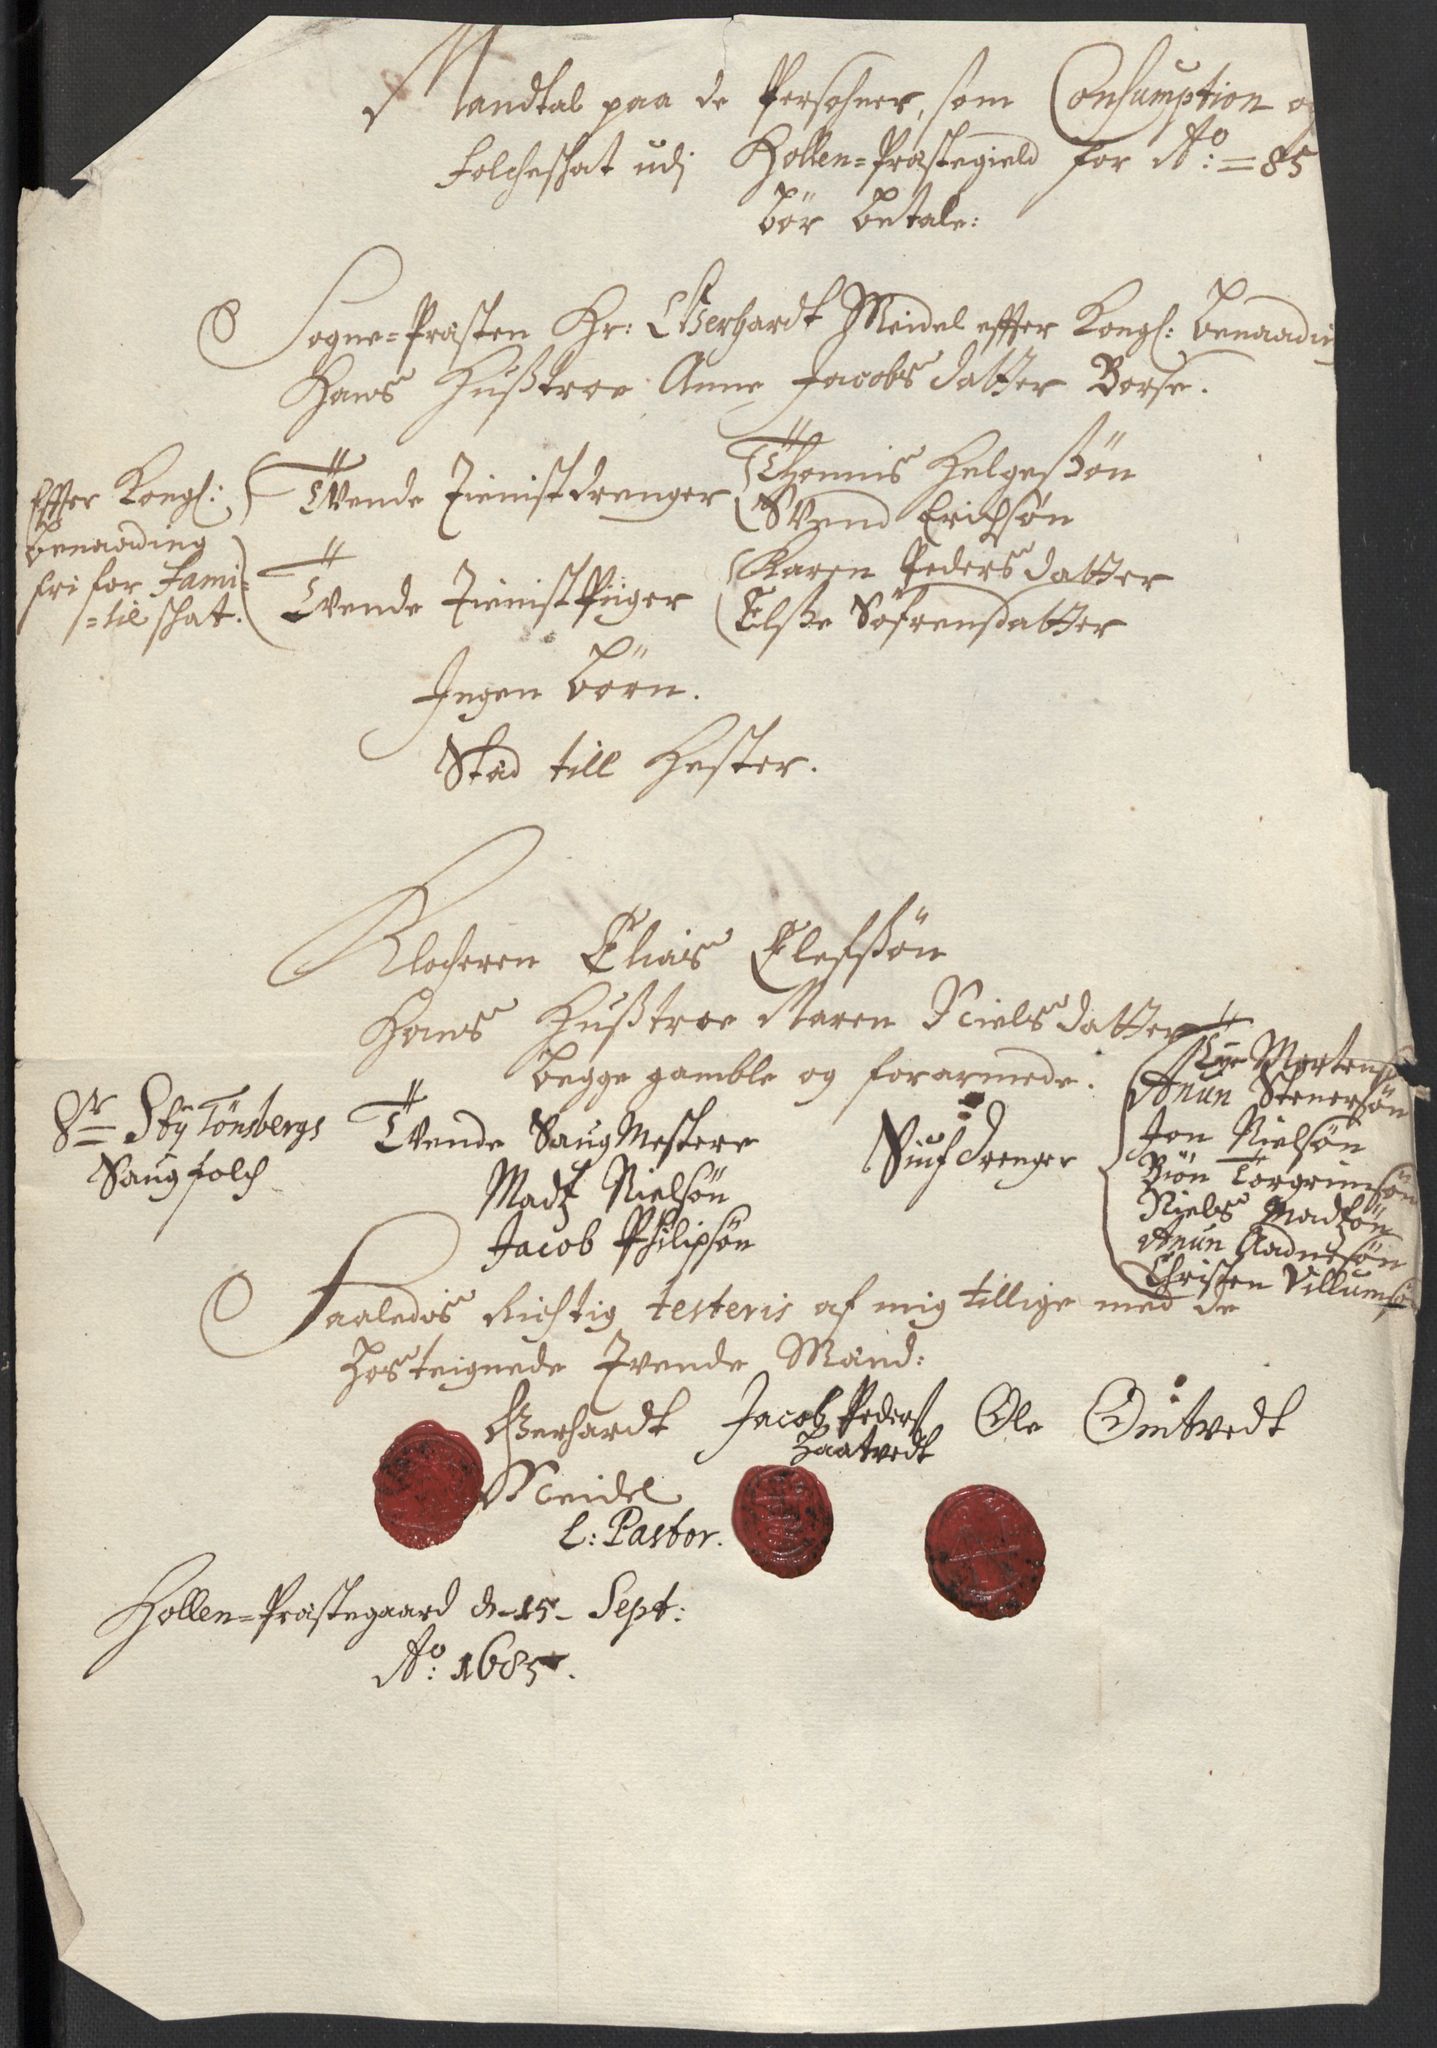 Mandtal paa de Persohner, som Consumption o
Folcheschat udj Hollen=Præstegield for Ao: = 85
bör betale:
Sogne=Præsten Hr: Gerhardt Meidel effter Kongl: benaadi
Hans Hustroe Anne Jacobs datter Borse.
Effter Kongl:
benaading
fri for Fami=
=lie schat.
Tvende Tienistdrenger
Thonnis Helgesön
Svend Erichsön
Tvende Tienist Piiger
Karen Peders datter
Elsse Söfrensdatter
Ingen börn.
Städ till Hester.
Klocheren Elias Elefssön
Hans Hustroe Maren Niels datter
begge gamble og forarmede.
Sr Sty Tönsbergs
Saug folch
Tvende Saug Mestere
Madz Nielsön
Jacob Philipsön
Siuf drenger
Mortens
Anun Stenersön
Jon Nielsön
Biön Torgrimsön
Niels Madzön
Anun Aadnesön
Christen Villumsö
Saaledis Richtig testeris af mig tillige med de
hosteignede Tvende Mänd:
Gerhardt
Meidel
L: Pastor.
Jacob Peders
Haatvedt
Ole Omtvedt
Hollen=Præstegaard d. 15 Sept:
Ao: 1685.